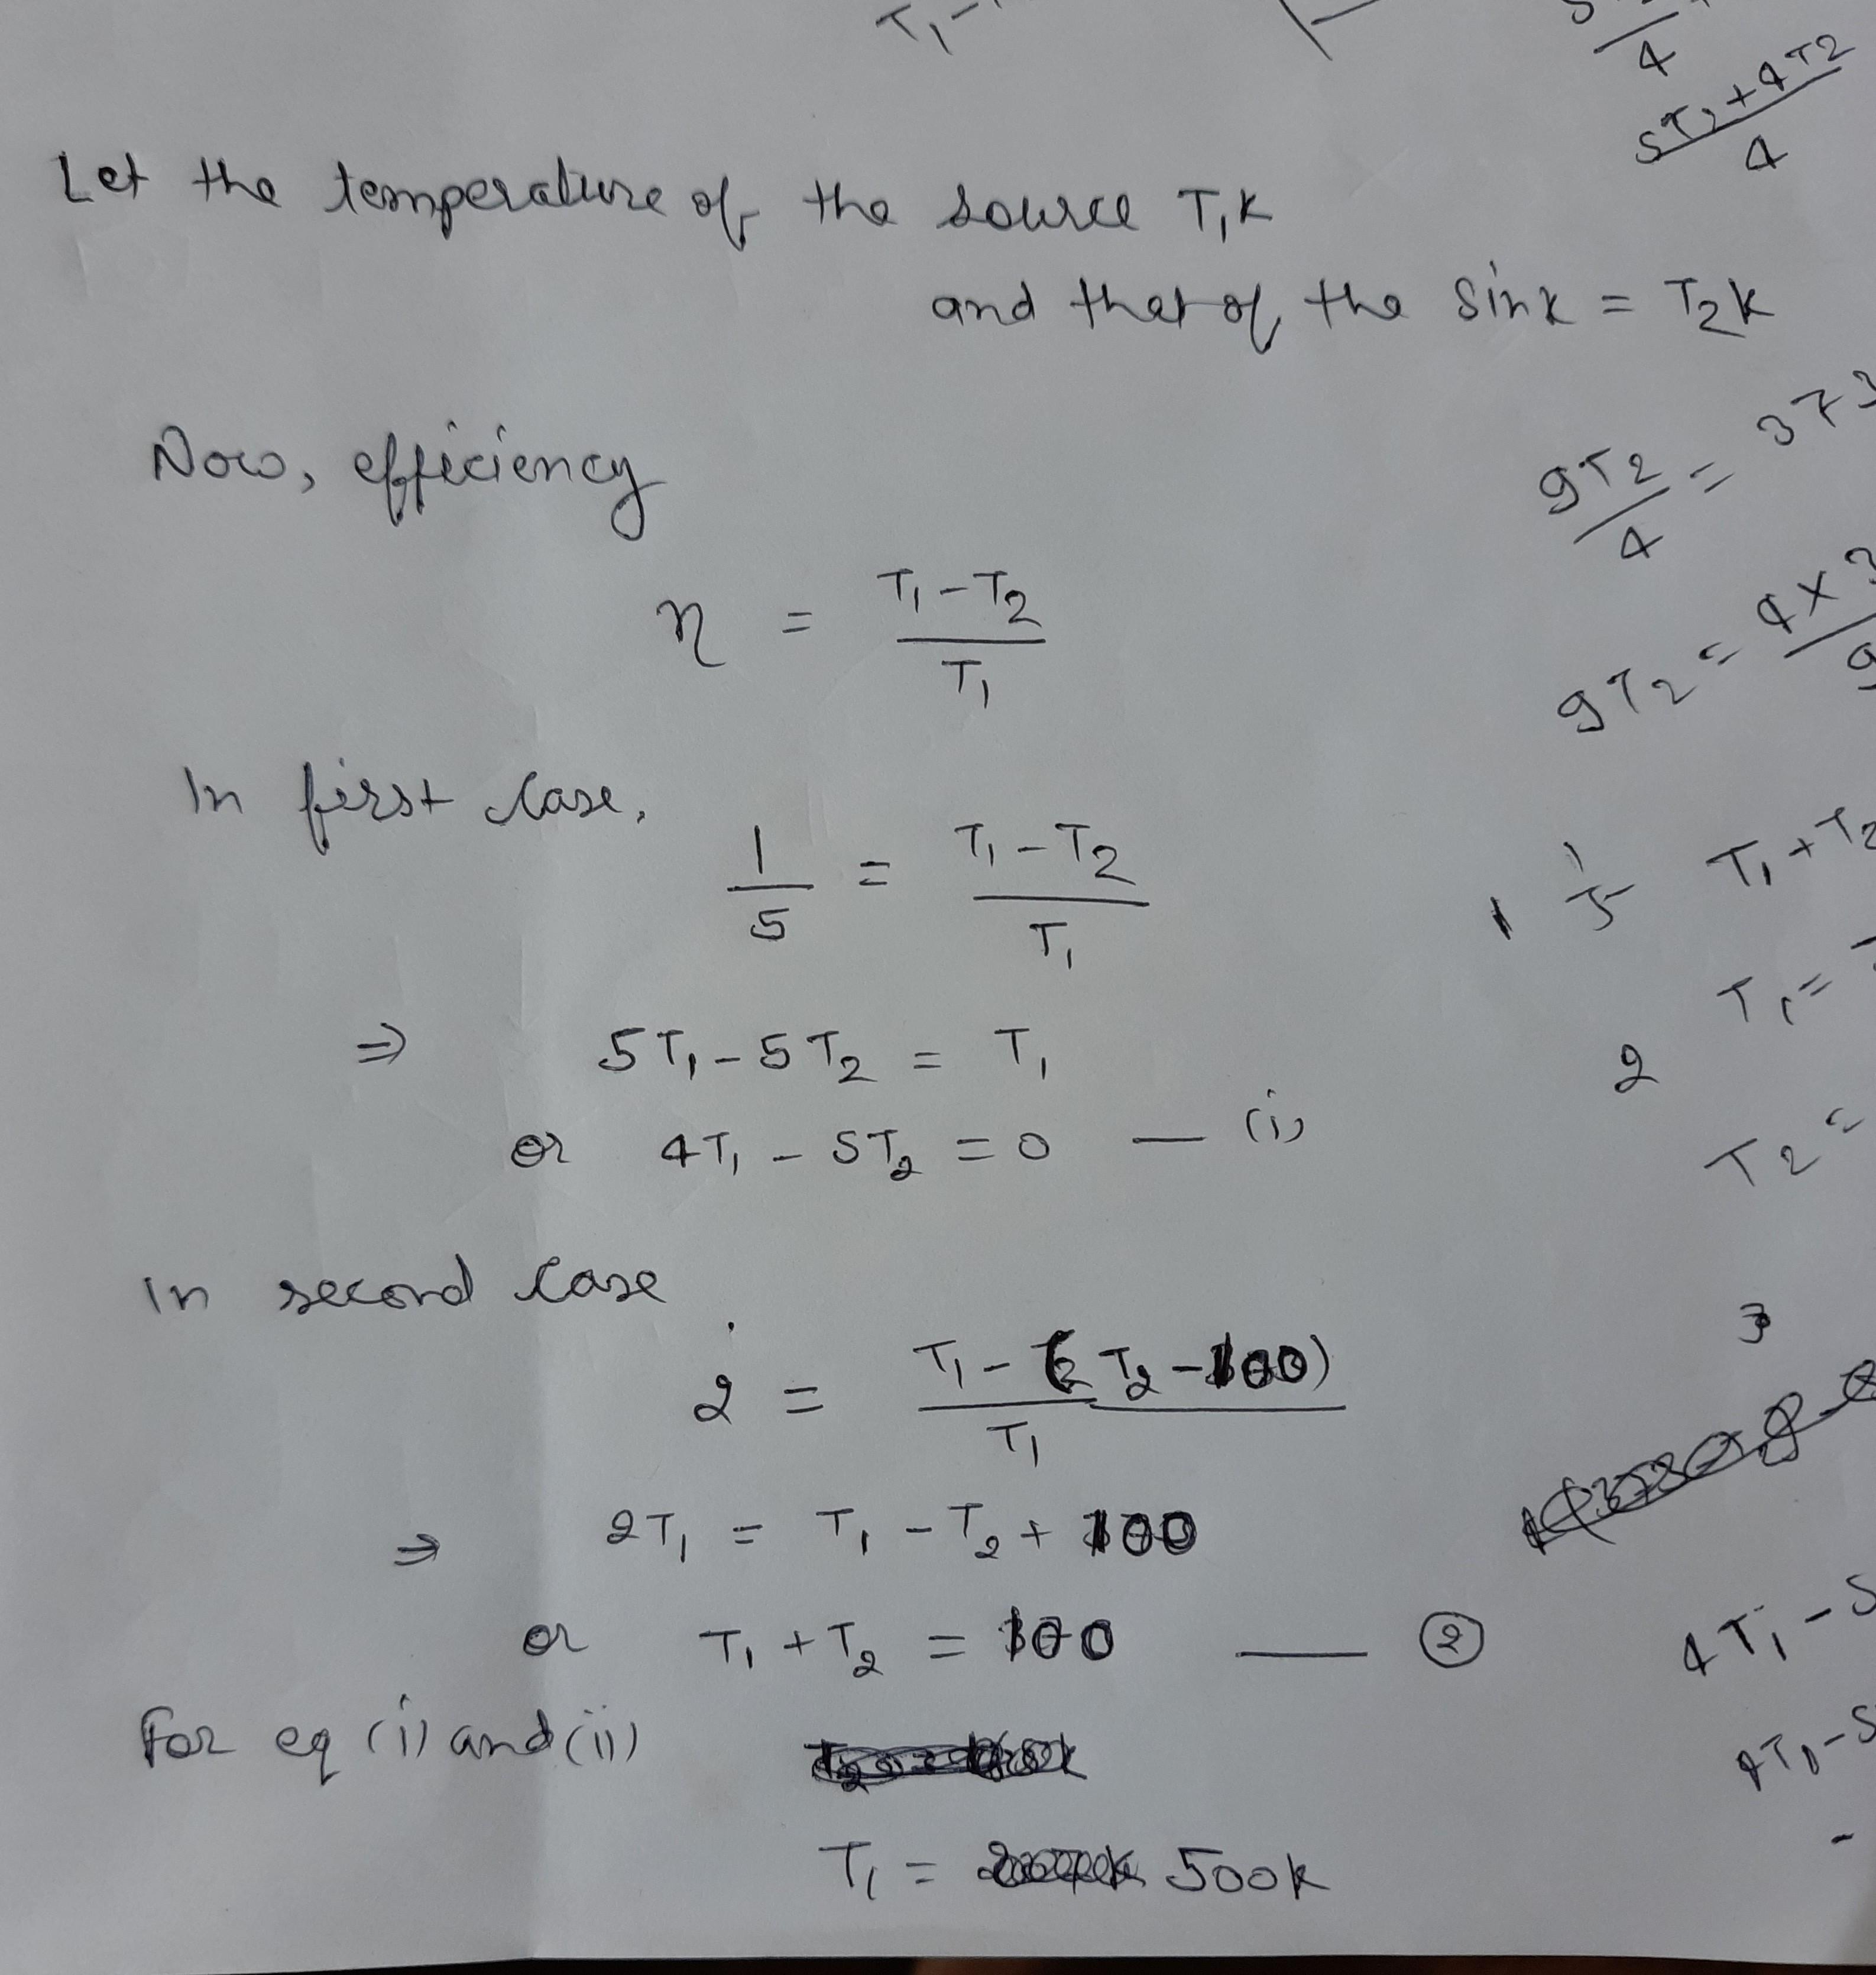 T₁-
4
5T₂+4T2
4
Let the temperature of the source T₁K
and that of the sink = T₂K
Now, efficiency
9T2/4 = 373
η = (T₁-T₂)/T₁
9T2 = 4×
In first case,
1/5 = (T₁-T₂)/T₁
1 1/5 T₁+T₂
⇒ 5T₁-5T₂ = T₁
T₁=
2
or 4T₁ - 5T₂ = 0 — (i)
T2=
In second case
3
2 = (T₁-(T₂-100))/T₁
⇒ 2T₁ = T₁-T₂+100
or T₁+T₂ = 100 — ②
4T₁-5
For eq (i) and (ii)
4T₁-5
T₁ = 500K